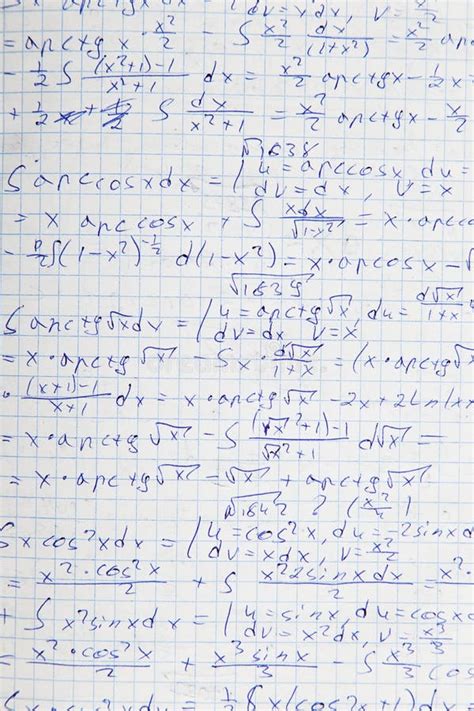 ∫ x arctg x dx = { dv = x dx, v = x²/2
= arctg x · x²/2 - ∫ x²/2 dx/(1+x²) = x²/2 arc
- 1/2 ∫ ((x²+1)-1)/(x²+1) dx = x²/2 arctgx - 1/2 x
+ 1/2 ∫ dx/(x²+1) = x²/2 arctgx - x/2
√1638
∫ arccosxdx = { u = arccosx, du =
dv = dx, v = x
= x arccosx + ∫ xdx/√(1-x²) = x · arcc
∫(1-x²)^(-1/2) d(1-x²) = x · arcosx - √
√1639
∫ arctg√x dx = { u = arctg√x, du = d√x/(1+x)
dv = dx v = x
= x · arctg √x - ∫ x · d√x/(1+x) = (x · arctg√x
· ((x+1)-1)/(x+1) dx = x · arctg√x - 2x + 2ln|x
= x · arctg √x - ∫ ((√x²+1)-1)/(√x²+1) d√x =
= x · arctg√x - √x + arctg√x
√1642 ? (x²/4)
∫ x cos²xdx = { u = cos²x, du = -2sinx
dv = xdx, v = x²/2
= x²·cos²x/2 + ∫ x²2sinxdx/2 = x²·
+ ∫ x²sinxdx = { u = sinx, du = cosx
dv = x²dx, v = x³/3
= x²·cos²x/2 + x³sinx/3 - ∫ x³/3 cos
= 1/2 ∫ x(cos2x+1)dx